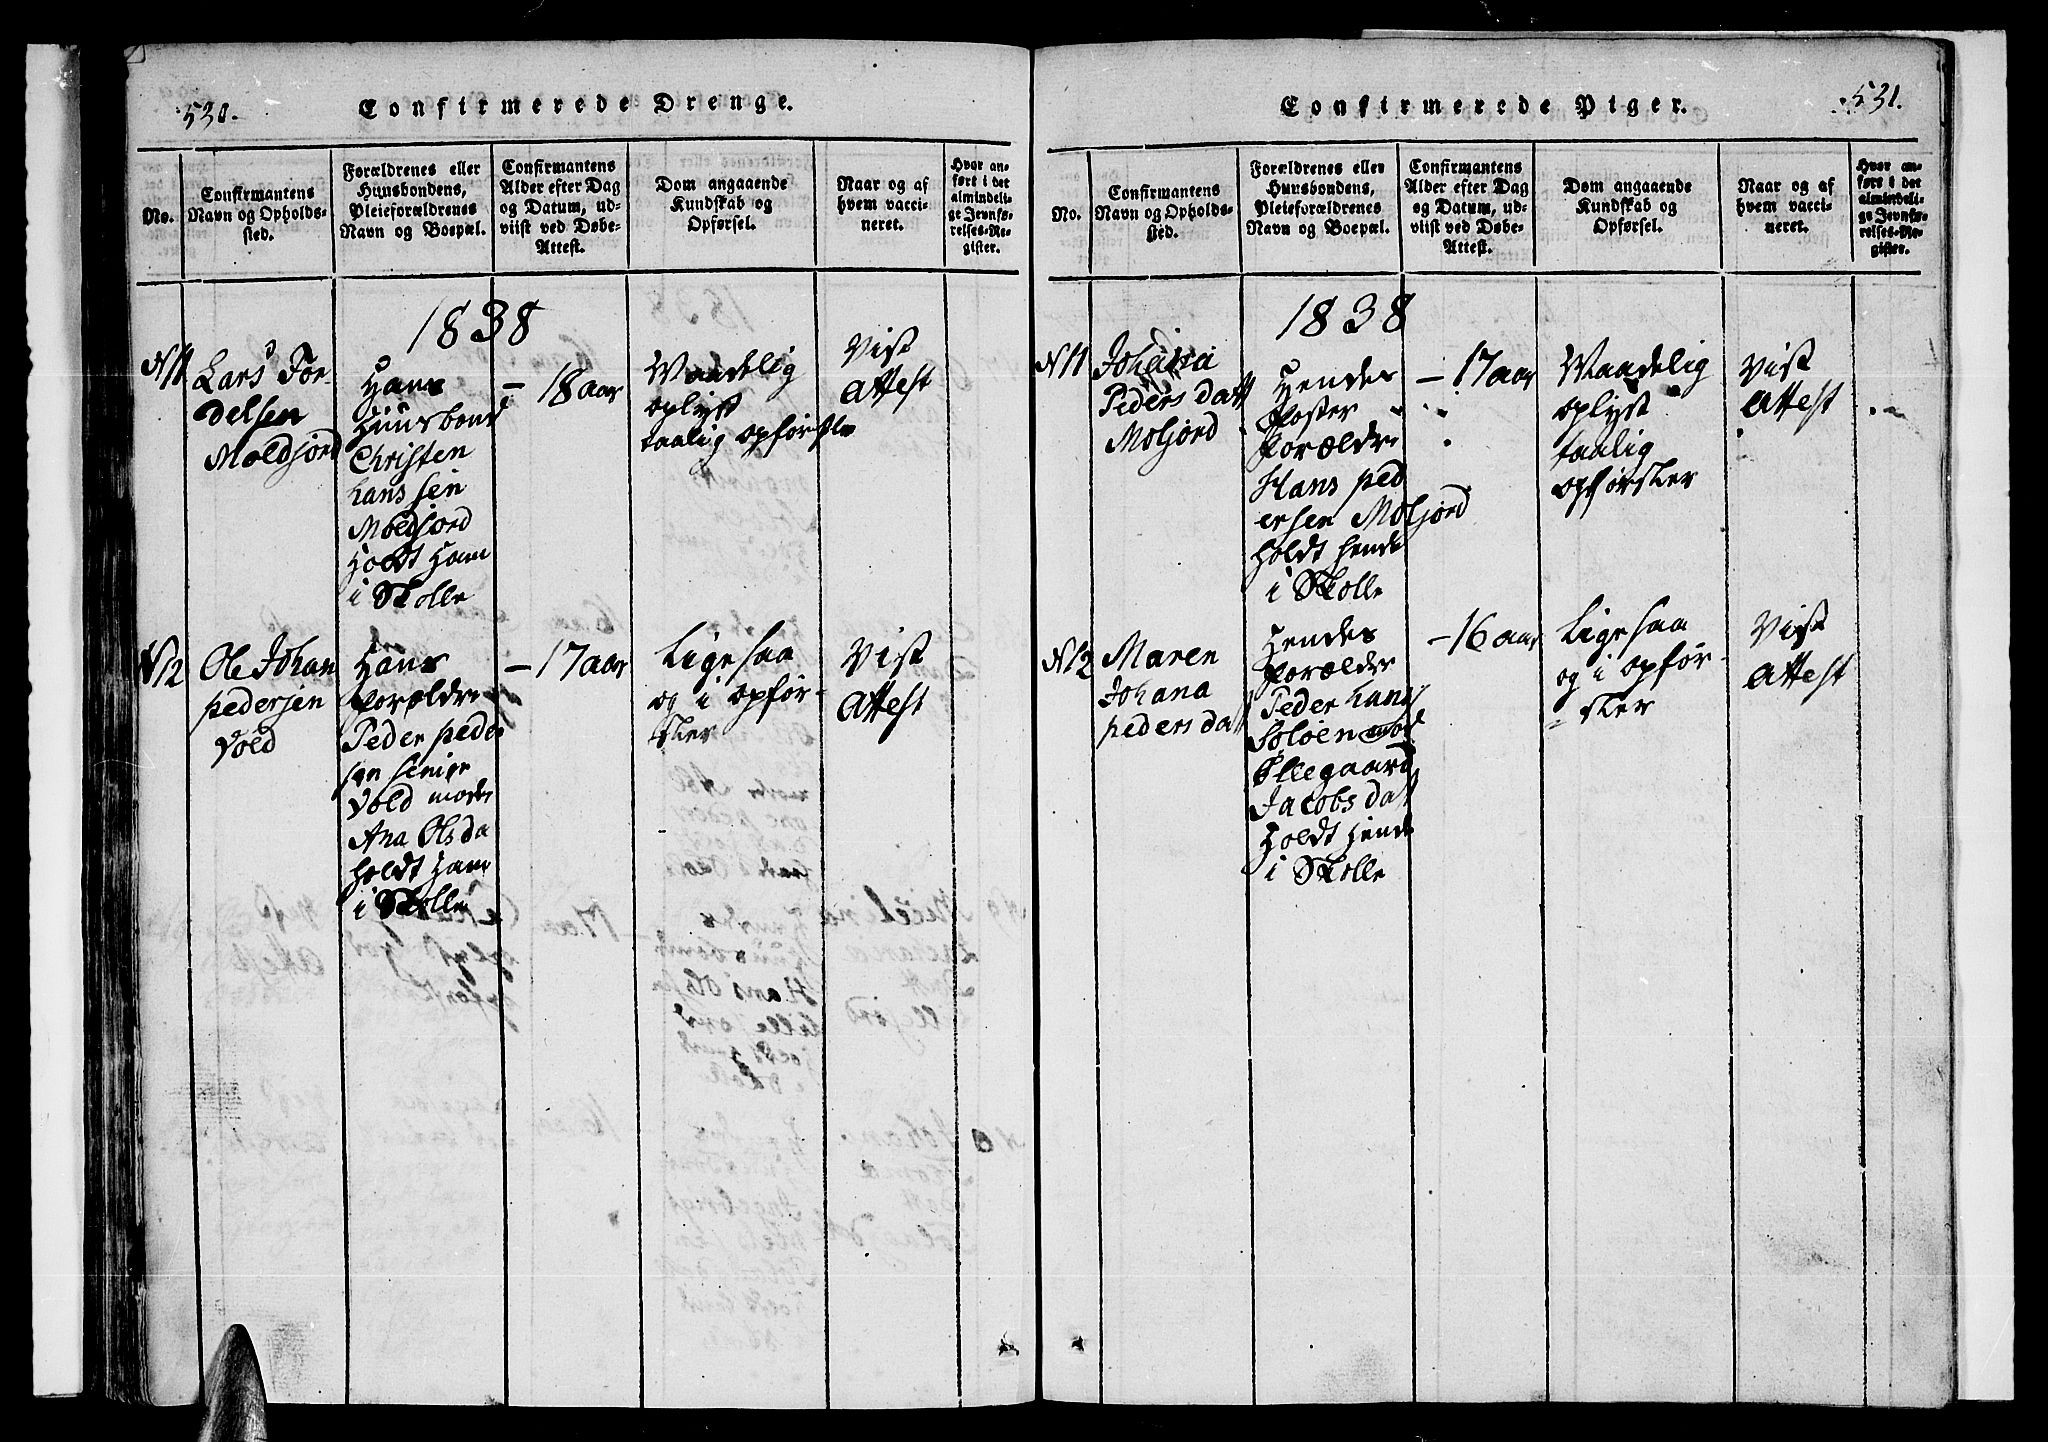 530.
Confirmerede Drenge.
No.
Confirmantens
Navn og Opholds-
sted.
Forældrenes eller
Huusbondens,
Pleieforældrenes
Navn og Boepæl.
Confirmantens
Alder efter Dag
og Datum, ud-
viist ved Døbe-
Attest.
Dom angaaende
Kundskab og
Opførsel.
Naar og af
hvem vacci-
neret.
Hvor an-
ført i det
almindeli-
ge Jevnfø-
relses-Re-
gister.
1838
N11
Lars For-
delsen
Moldjord
Hans
Huusbond
Christen
hanssen
Moldjord
Holdt Ham
i Skolle
- 18 aar
Maadelig
oplyst
taalig opførsle
Vist
Attest
N12
Ole Johan
pedersen
Vold
Hans
Forældre
Peder peder
sen senior
Vold moder
Ana Olsda
holdt Ham
i Skolle
- 17 aar
Ligesaa
og i opfør-
sler
Vist
Attest
531.
Confirmerede Piger.
No.
Confirmantens
Navn og Opholds-
sted.
Forældrenes eller
Huusbondens,
Pleieforældrenes
Navn og Boepæl.
Confirmantens
Alder efter Dag
og Datum, ud-
viist ved Døbe-
Attest.
Dom angaaende
Kundskab og
Opførsel.
Naar og af
hvem vacci-
neret.
Hvor an-
ført i det
almindeli-
ge Jevnfø-
relses-Re-
gister.
1838
N11
Johana
Peders datt
Moljord
Hendes
Foster
Forældre
Hans ped
ersen Moljord
holdt hende
i Skolle
- 17 aar
Maadelig
oplyst
taalig
opførsler
Vist
Attest
N12
Maren
Johana
peders datt
Hendes
Forældre
Peder hans
Soløen mod
Øllegaard
Jacobs datt
Holdt Hende
i Skolle
- 16 aar
Ligesaa
og i opfør-
sler
Vist
Attest